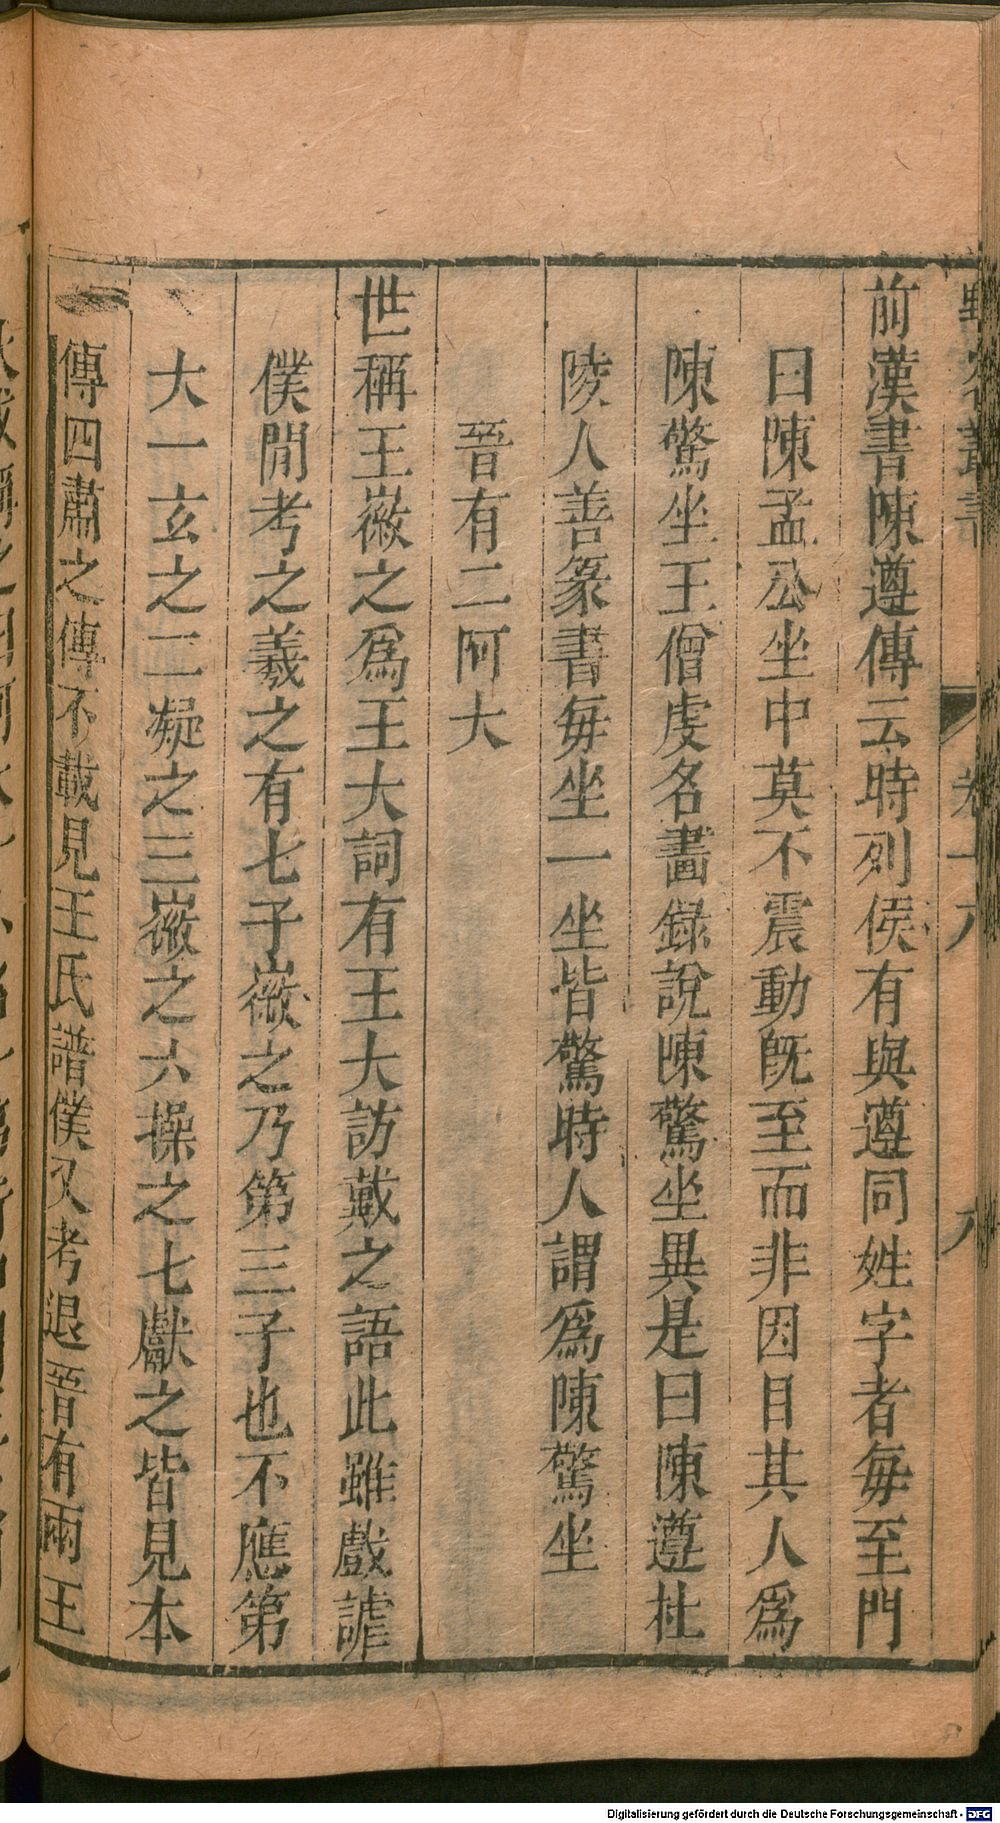 野客叢書 卷十八 八
前漢書陳遵傳云時列侯有與遵同姓字者每至門
曰陳孟公坐中莫不震動旣至而非因目其人爲
陳驚坐王僧虔名畫錄說陳驚坐異是曰陳遵杜
陵人善篆書每坐一坐皆驚時人謂爲陳驚坐
晉有二阿大
世稱王徽之爲王大詞有王大訪戴之語此雖戲謔
僕閒考之羲之有七子徽之乃第三子也不應第
大一玄之二凝之三徽之六操之七獻之皆見本
傳四肅之傳不載見王氏譜僕又考退晉有兩王
Digitalisierung gefördert durch die Deutsche Forschungsgemeinschaft - DFG